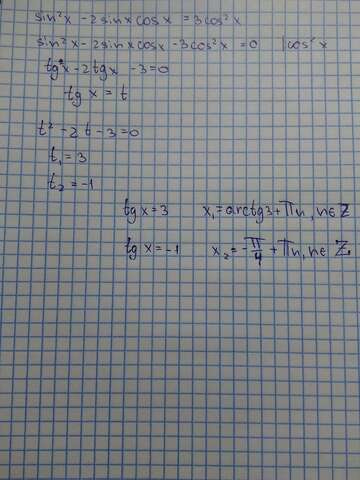 sin²x - 2sinxcosx = 3cos²x
sin²x - 2sinxcosx - 3cos²x = 0 |cos²x
tg²x - 2tgx - 3 = 0
tg x = t
t² - 2t - 3 = 0
t₁ = 3
t₂ = -1
tg x = 3 x₁ = arctg3 + πn, n∈Z
tg x = -1 x₂ = -π/4 + πn, n∈Z